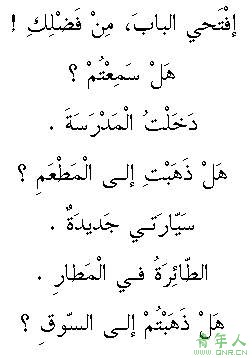 إفْتَحي البابَ، مِنْ فَضْلِكِ !
هَلْ سَمِعْتُمْ ؟
دَخَلْتُ الْمَدْرَسَةَ .
هَلْ ذَهَبْتِ إلى الْمَطْعَمِ ؟
سَيّارَتي جَديدَةٌ .
الطّائِرَةُ في الْمَطارِ .
هَلْ ذَهَبْتُمْ إلى السّوقِ ؟
青年人
WWW.QNR.CN